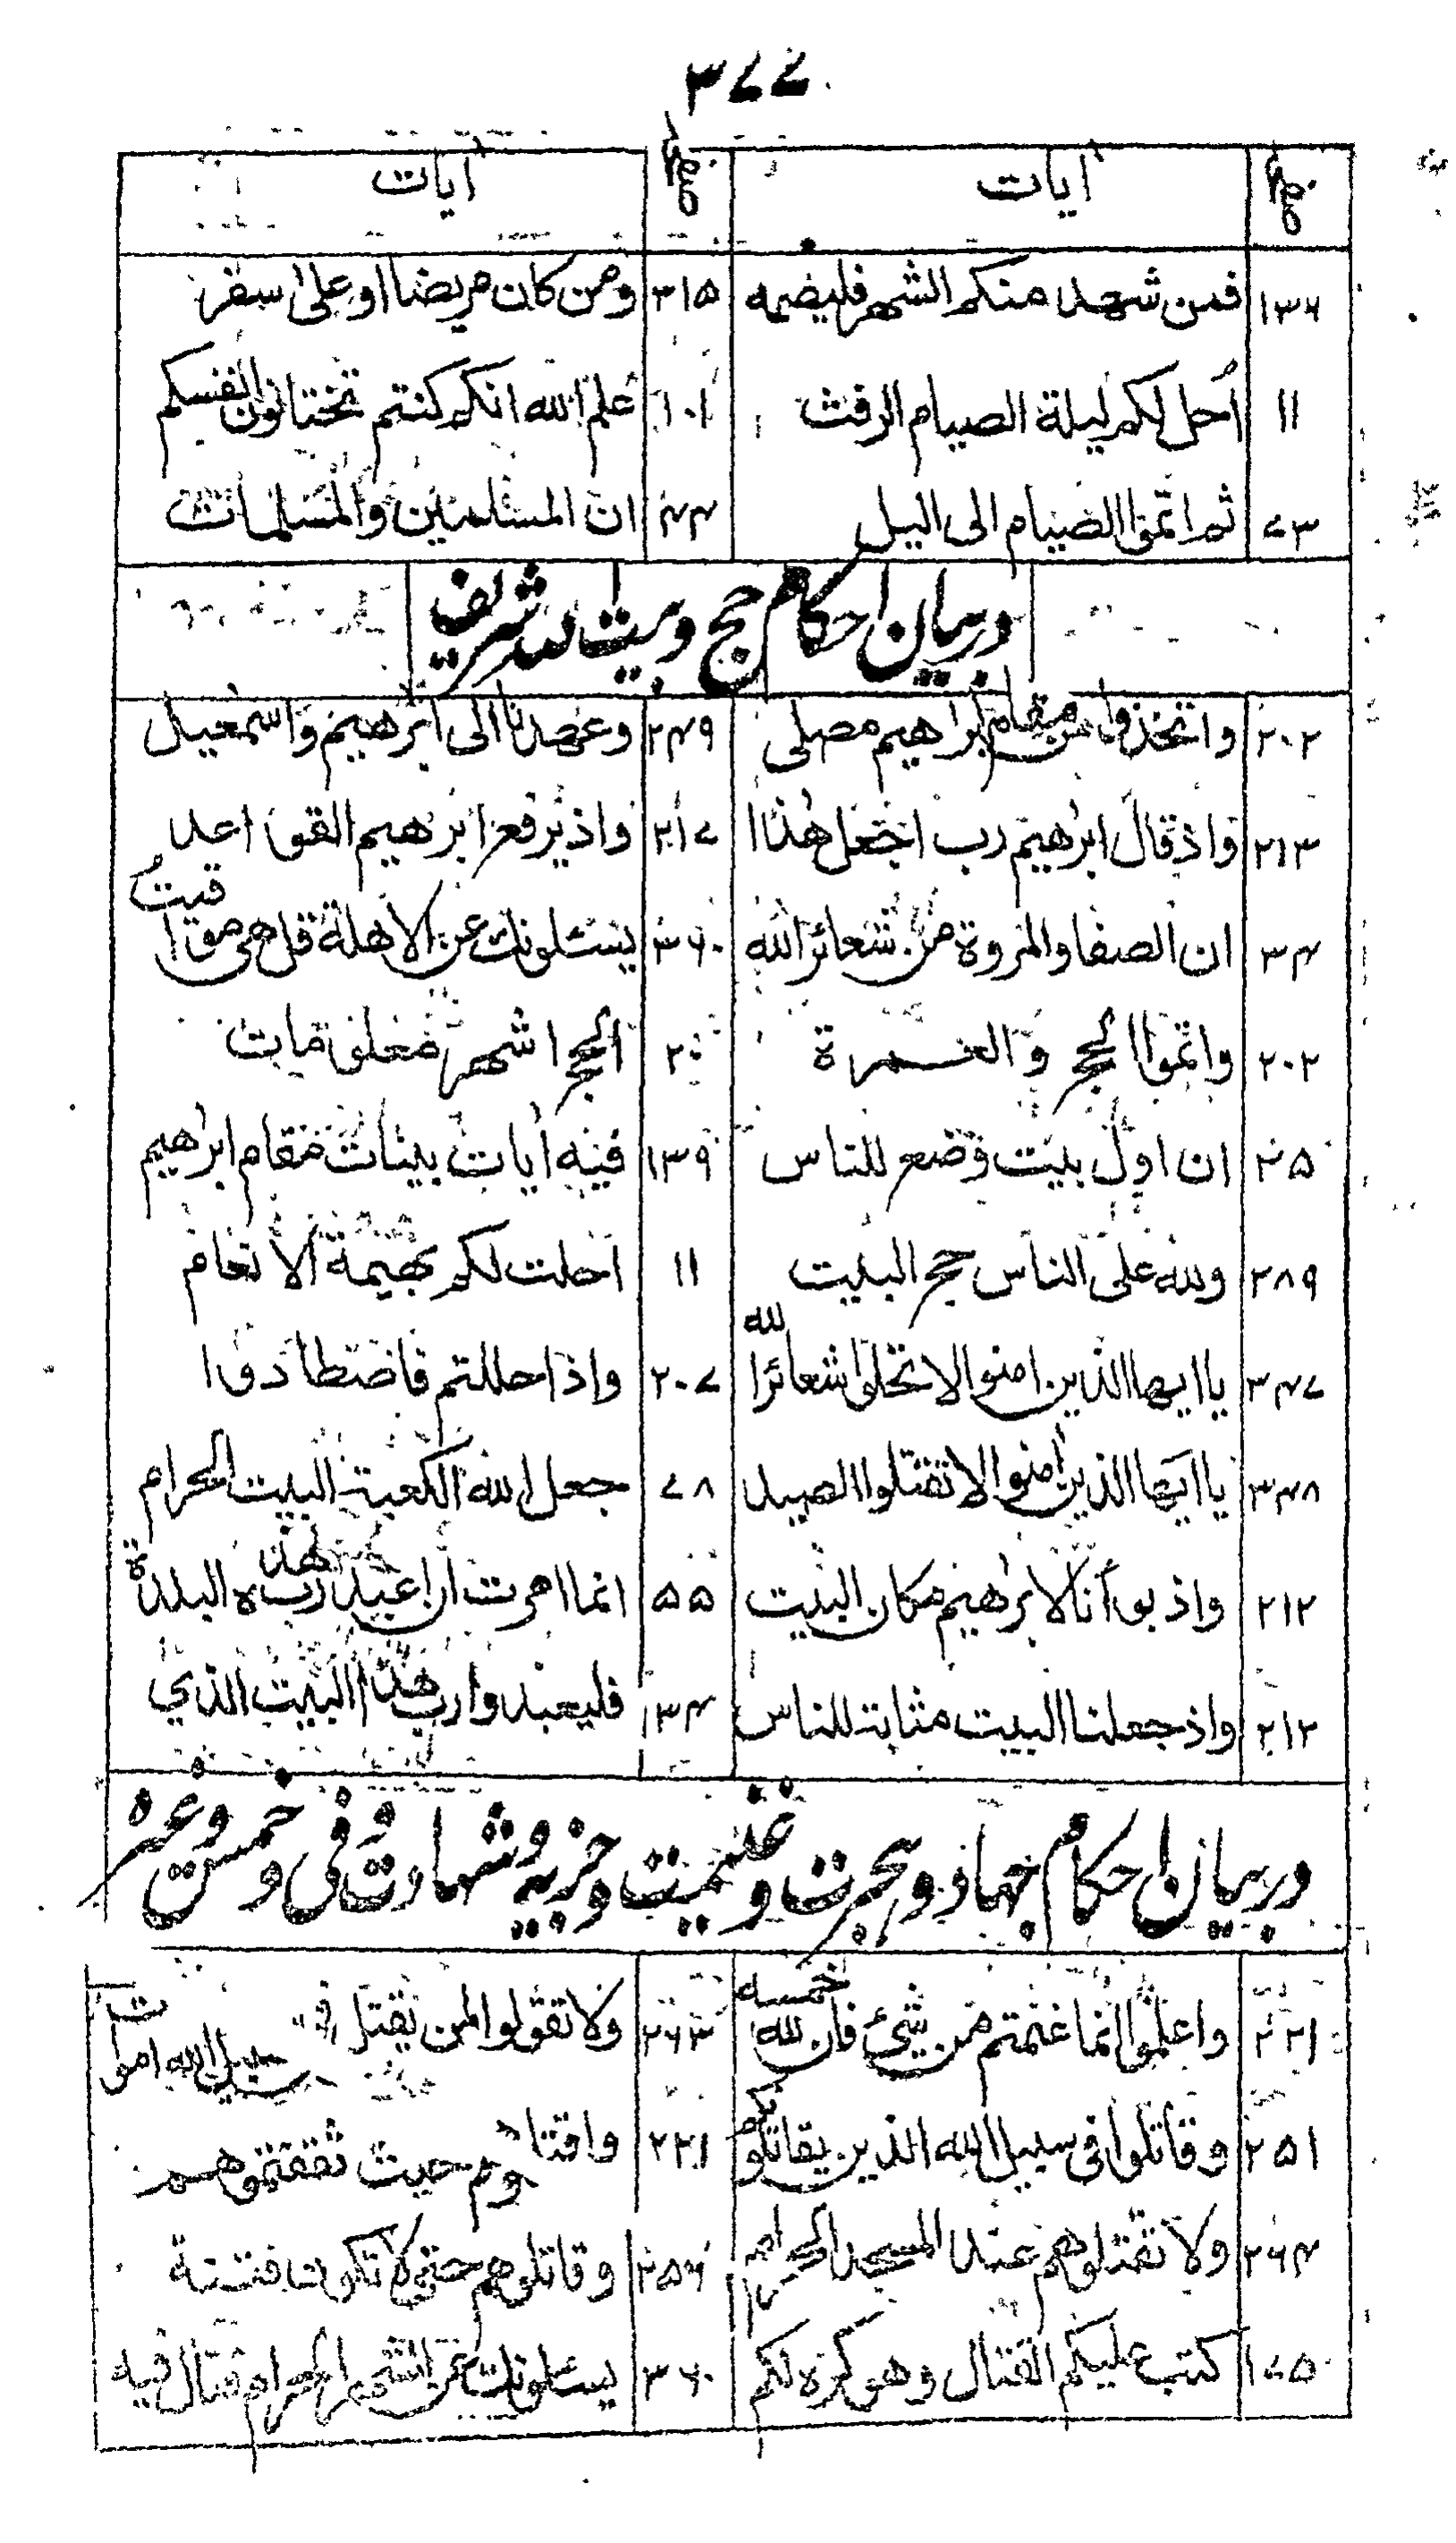 ۳۷۷
صفحہ آیات صفحہ آیات
۱۳۶ فمن شهد منكم الشهر فليضمه ۳۱۵ ومن كان مريضا او على سفر
۱۱ احل لكم ليلة الصيام الرفث ۱۰۱ علم الله انكم كنتم تختانون انفسكم
۷۳ ثم اتموا الصيام الى اليل ۴۴ ان المسلمين والمسلمات
در بیان احکام حج و بیت اللہ شریف
۲۰۲ واتخذوا من مقام ابراهيم مصلى ۲۴۹ وعهدنا الى ابرهيم واسمعيل
۲۱۳ واذ قال ابرهيم رب اجعل هذا ۲۱۷ واذ يرفع ابرهيم القواعد
۳۴ ان الصفا والمروة من شعائر الله ۳۶۰ يسئلونك عن الاهلة قل هى مواقيت
۲۰۲ واتموا الحج و العمرة ۲۰ الحج اشهر معلومات
۲۵ ان اول بيت وضع للناس ۱۳۹ فيه ايات بينات مقام ابرهيم
۲۸۹ ولله على الناس حج البيت ۱۱ احلت لكم بهيمة الانعام
۳۴۷ يا ايها الذين امنوا لا تحلوا شعائر الله ۲۰۷ واذا حللتم فاصطادوا
۳۴۸ يا ايها الذين امنوا لا تقتلوا الصيد ۷۸ جعل الله الكعبة البيت الحرام
۲۱۲ واذ بوانا لابرهيم مكان البيت ۵۵ انما امرت ان اعبد رب هذه البلدة
۲۱۲ واذ جعلنا البيت مثابة للناس ۱۳۴ فليعبدوا رب هذا البيت الذي
در بیان احکام جہاد و ہجرت و غنیمت و جزیہ و شہادت و فی و خمس و غیرہ
۲۲۱ واعلموا انما غنمتم من شئ فان لله خمسه ۲۶۳ ولا تقولوا لمن يقتل فى سبيل الله اموات
۲۵۱ وقاتلوا فى سبيل الله الذين يقاتلونكم ۲۲۱ واقتلوهم حيث ثقفتموهم
۲۶۴ ولا تقتلوهم عند المسجد الحرام ۲۵۶ وقاتلوهم حتى لا تكون فتنة
۱۷۵ كتب عليكم القتال وهو كره لكم ۳۶۰ يسئلونك عن الشهر الحرام قتال فيه